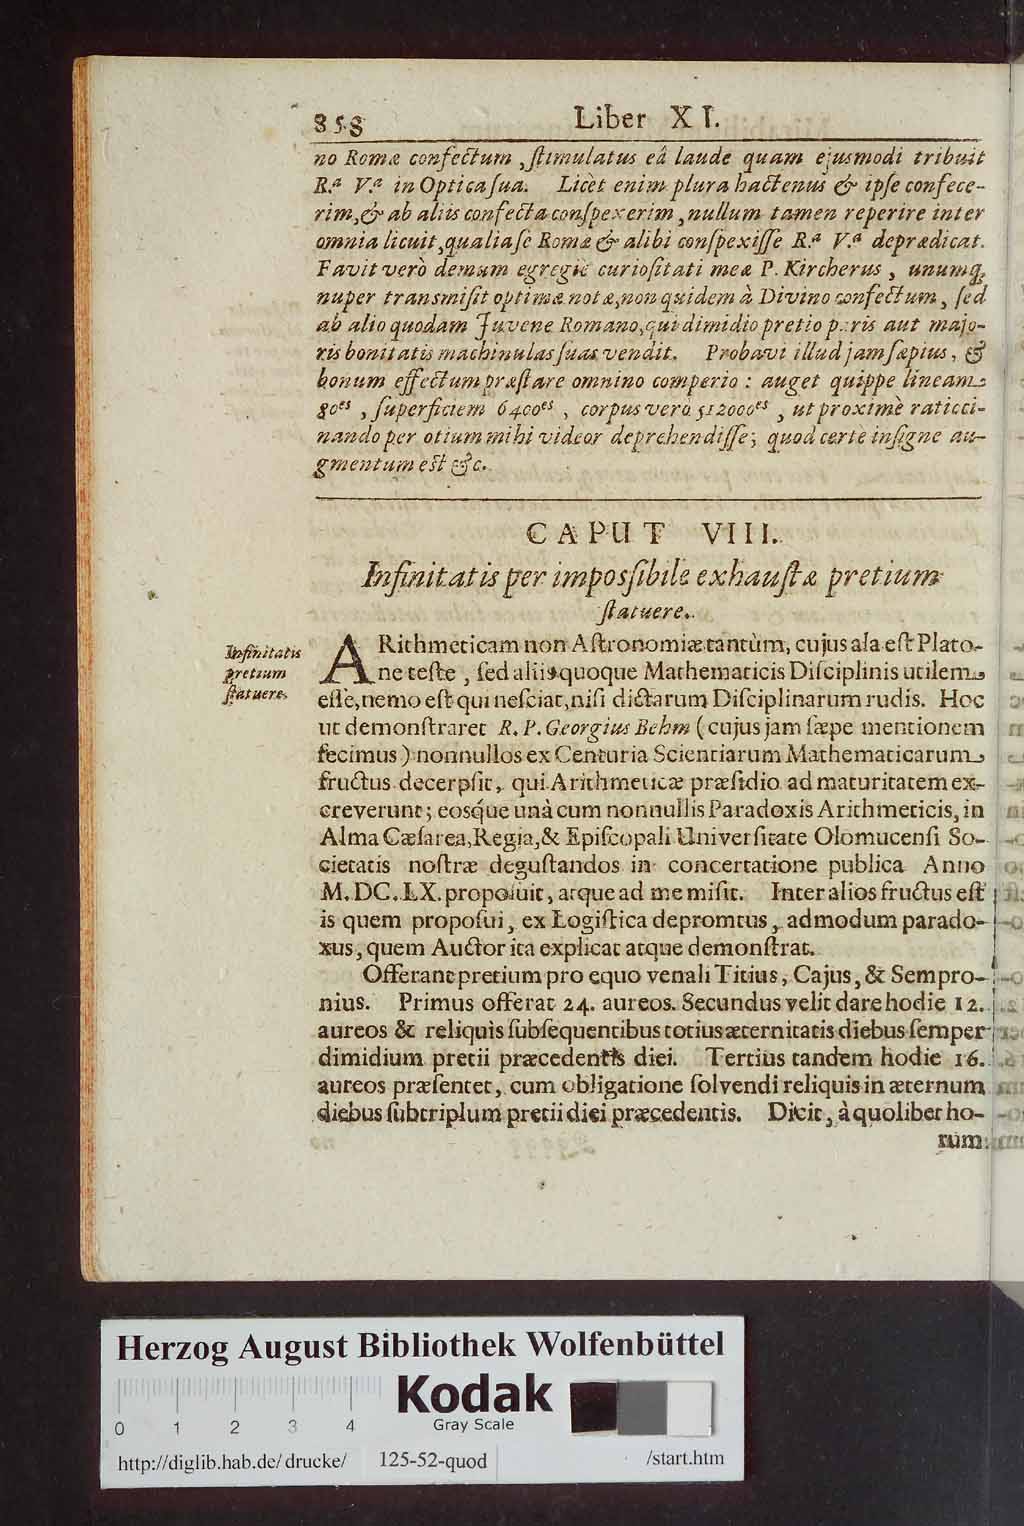 858 Liber XI.
no Romæ confectum, ſtimulatus eâ laude quam ejusmodi tribuit
R.ª V.ª in Optica ſua. Licèt enim plura hactenus & ipſe confece-
rim, & ab aliis confecta conſpexerim, nullum tamen reperire inter
omnia licuit, qualia ſe Romæ & alibi conſpexiſſe R.ª V.ª deprædicat.
Favit verò demum egregiè curioſitati meæ P. Kircherus, unumq;
nuper transmiſit optimæ notæ, non quidem à Divino confectum, ſed
ab alio quodam Juvene Romano, qui dimidio pretio paris aut majo-
ris bonitatis machinulas ſuas vendit. Probavi illud jam ſæpius, &
bonum effectum præſtare omnino comperio: auget quippe lineam
80es, ſuperficiem 6400es, corpus verò 512000es, ut proximè raticci-
nando per otium mihi videor deprehendiſſe; quod certe inſigne au-
gmentum eſt &c.
CAPUT VIII.
Infinitatis per impoſſibile exhauſtæ pretium
ſtatuere.
Infinitatis
pretium
ſtatuere.
ARithmeticam non Aſtronomiæ tantùm, cujus ala eſt Plato-
ne teſte, ſed aliis quoque Mathematicis Diſciplinis utilem
eſſe, nemo eſt qui neſciat, niſi dictarum Diſciplinarum rudis. Hoc
ut demonſtraret R. P. Georgius Behm (cujus jam ſæpe mentionem
fecimus) nonnullos ex Centuria Scientiarum Mathematicarum
fructus decerpſit, qui Arithmeticæ præſidio ad maturitatem ex-
creverunt; eosq́ue unà cum nonnullis Paradoxis Arithmeticis, in
Alma Cæſarea, Regia, & Epiſcopali Univerſitate Olomucenſi So-
cietatis noſtræ deguſtandos in concertatione publica Anno
M. DC. LX. propoſuit, atque ad me miſit. Inter alios fructus eſt
is quem propoſui, ex Logiſtica depromtus, admodum parado-
xus, quem Auctor ita explicat atque demonſtrat.
Offerant pretium pro equo venali Titius, Cajus, & Sempro-
nius. Primus offerat 24. aureos. Secundus velit dare hodie 12.
aureos & reliquis ſubſequentibus totius æternitatis diebus ſemper
dimidium pretii præcedentis diei. Tertius tandem hodie 16.
aureos præſentet, cum obligatione ſolvendi reliquis in æternum
diebus ſubtriplum pretii diei præcedentis. Dicit, à quolibet ho-
rum
Herzog August Bibliothek Wolfenbüttel
Kodak
Gray Scale
0 1 2 3 4
http://diglib.hab.de/drucke/ 125-52-quod /start.htm